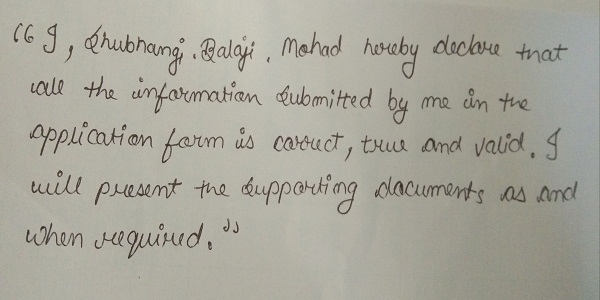 “I, Shubhangi. Balaji. Mohad hereby declare that
all the information submitted by me in the
application form is correct, true and valid. I
will present the supporting documents as and
when required.”